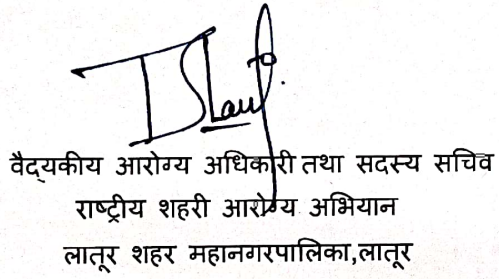 वैद्यकीय आरोग्य अधिकारी तथा सदस्य सचिव
राष्ट्रीय शहरी आरोग्य अभियान
लातूर शहर महानगरपालिका,लातूर